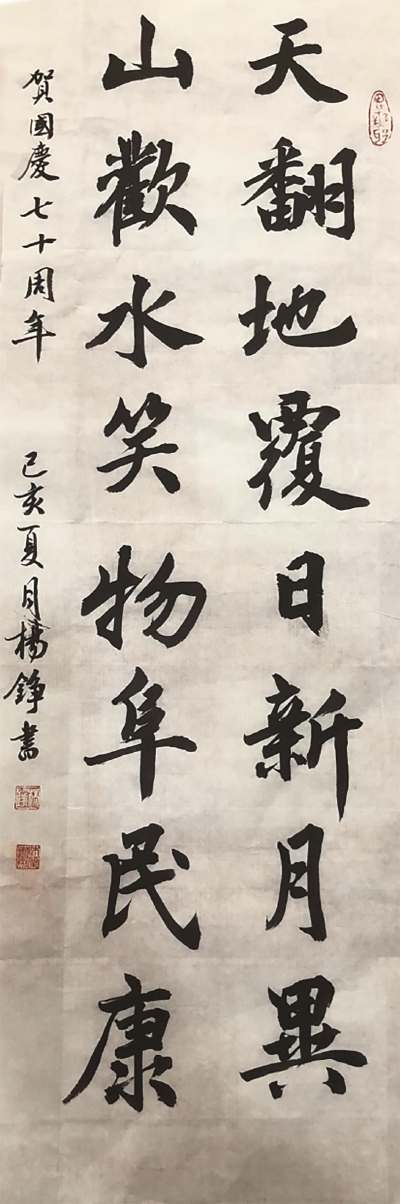 天翻地覆日新月異
山歡水笑物阜民康
賀國慶七十周年
己亥夏月楊錚書